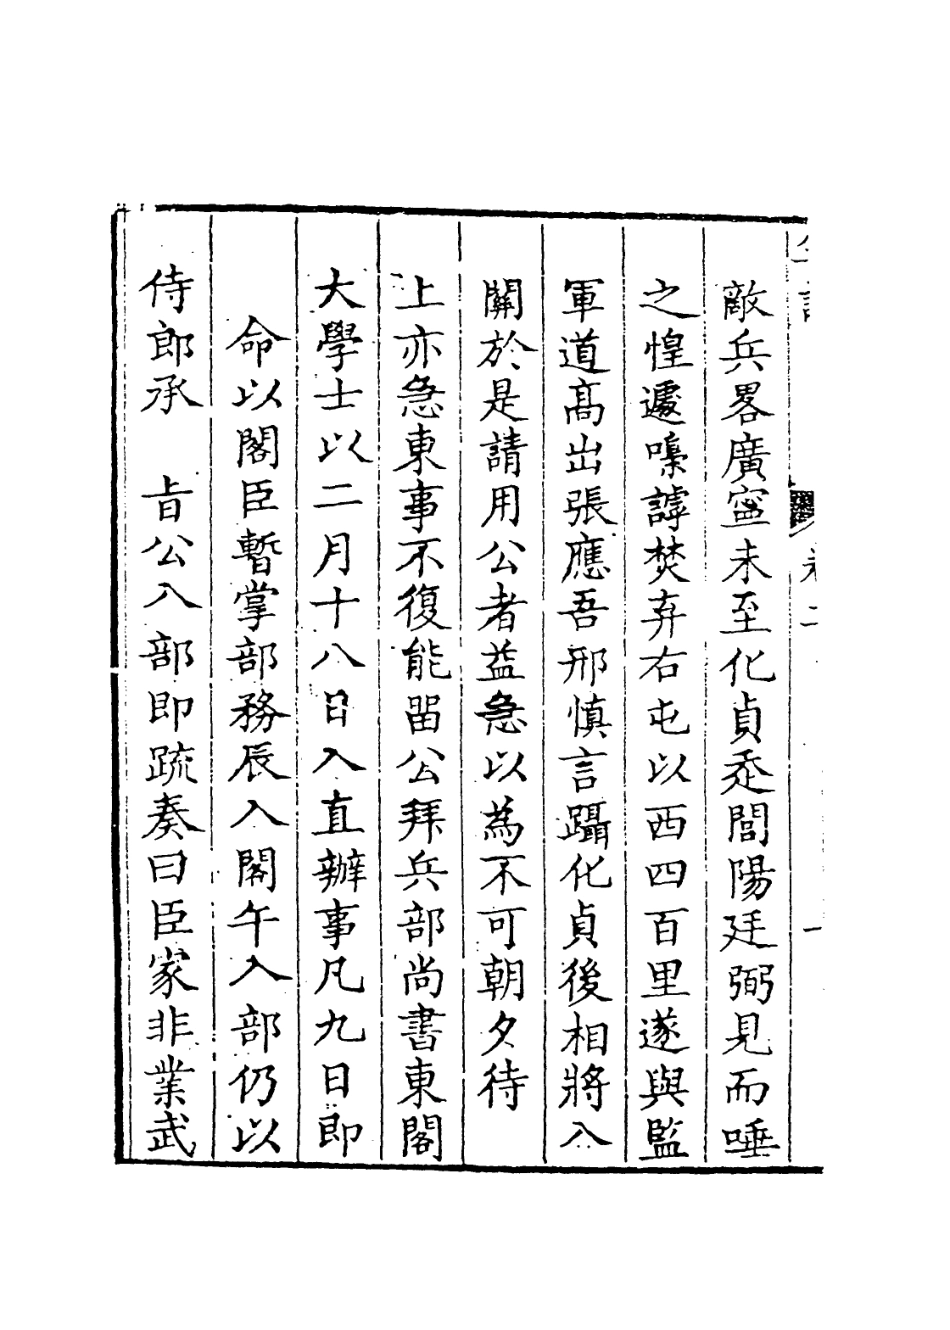 敵兵畧廣寧未至化貞走閭陽廷弼見而唾
之惶遽嘄謼焚弃右屯以西四百里遂與監
軍道高出張應吾邢慎言躡化貞後相將入
關於是請用公者益急以為不可朝夕待
上亦急東事不復能畱公拜兵部尚書東閣
大學士以二月十八日入直辦事凡九日即
命以閣臣暫掌部務辰入閣午入部仍以
侍郎承　旨公入部即疏奏曰臣家非業武